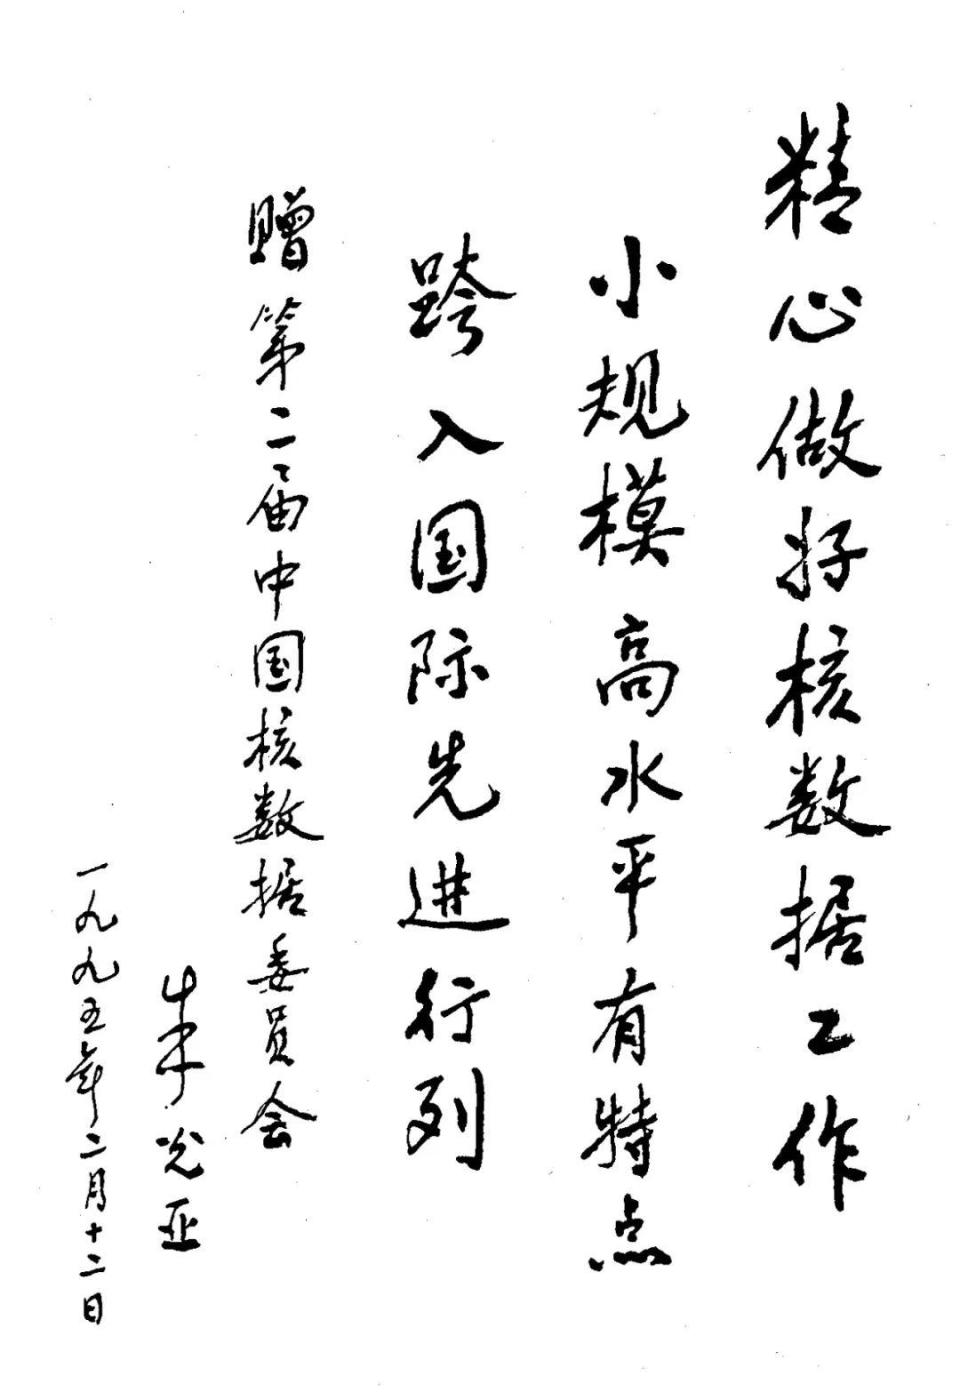 精心做好核数据工作
小规模高水平有特点
跨入国际先进行列
赠第二届中国核数据委员会
朱光亚
一九九五年二月十二日